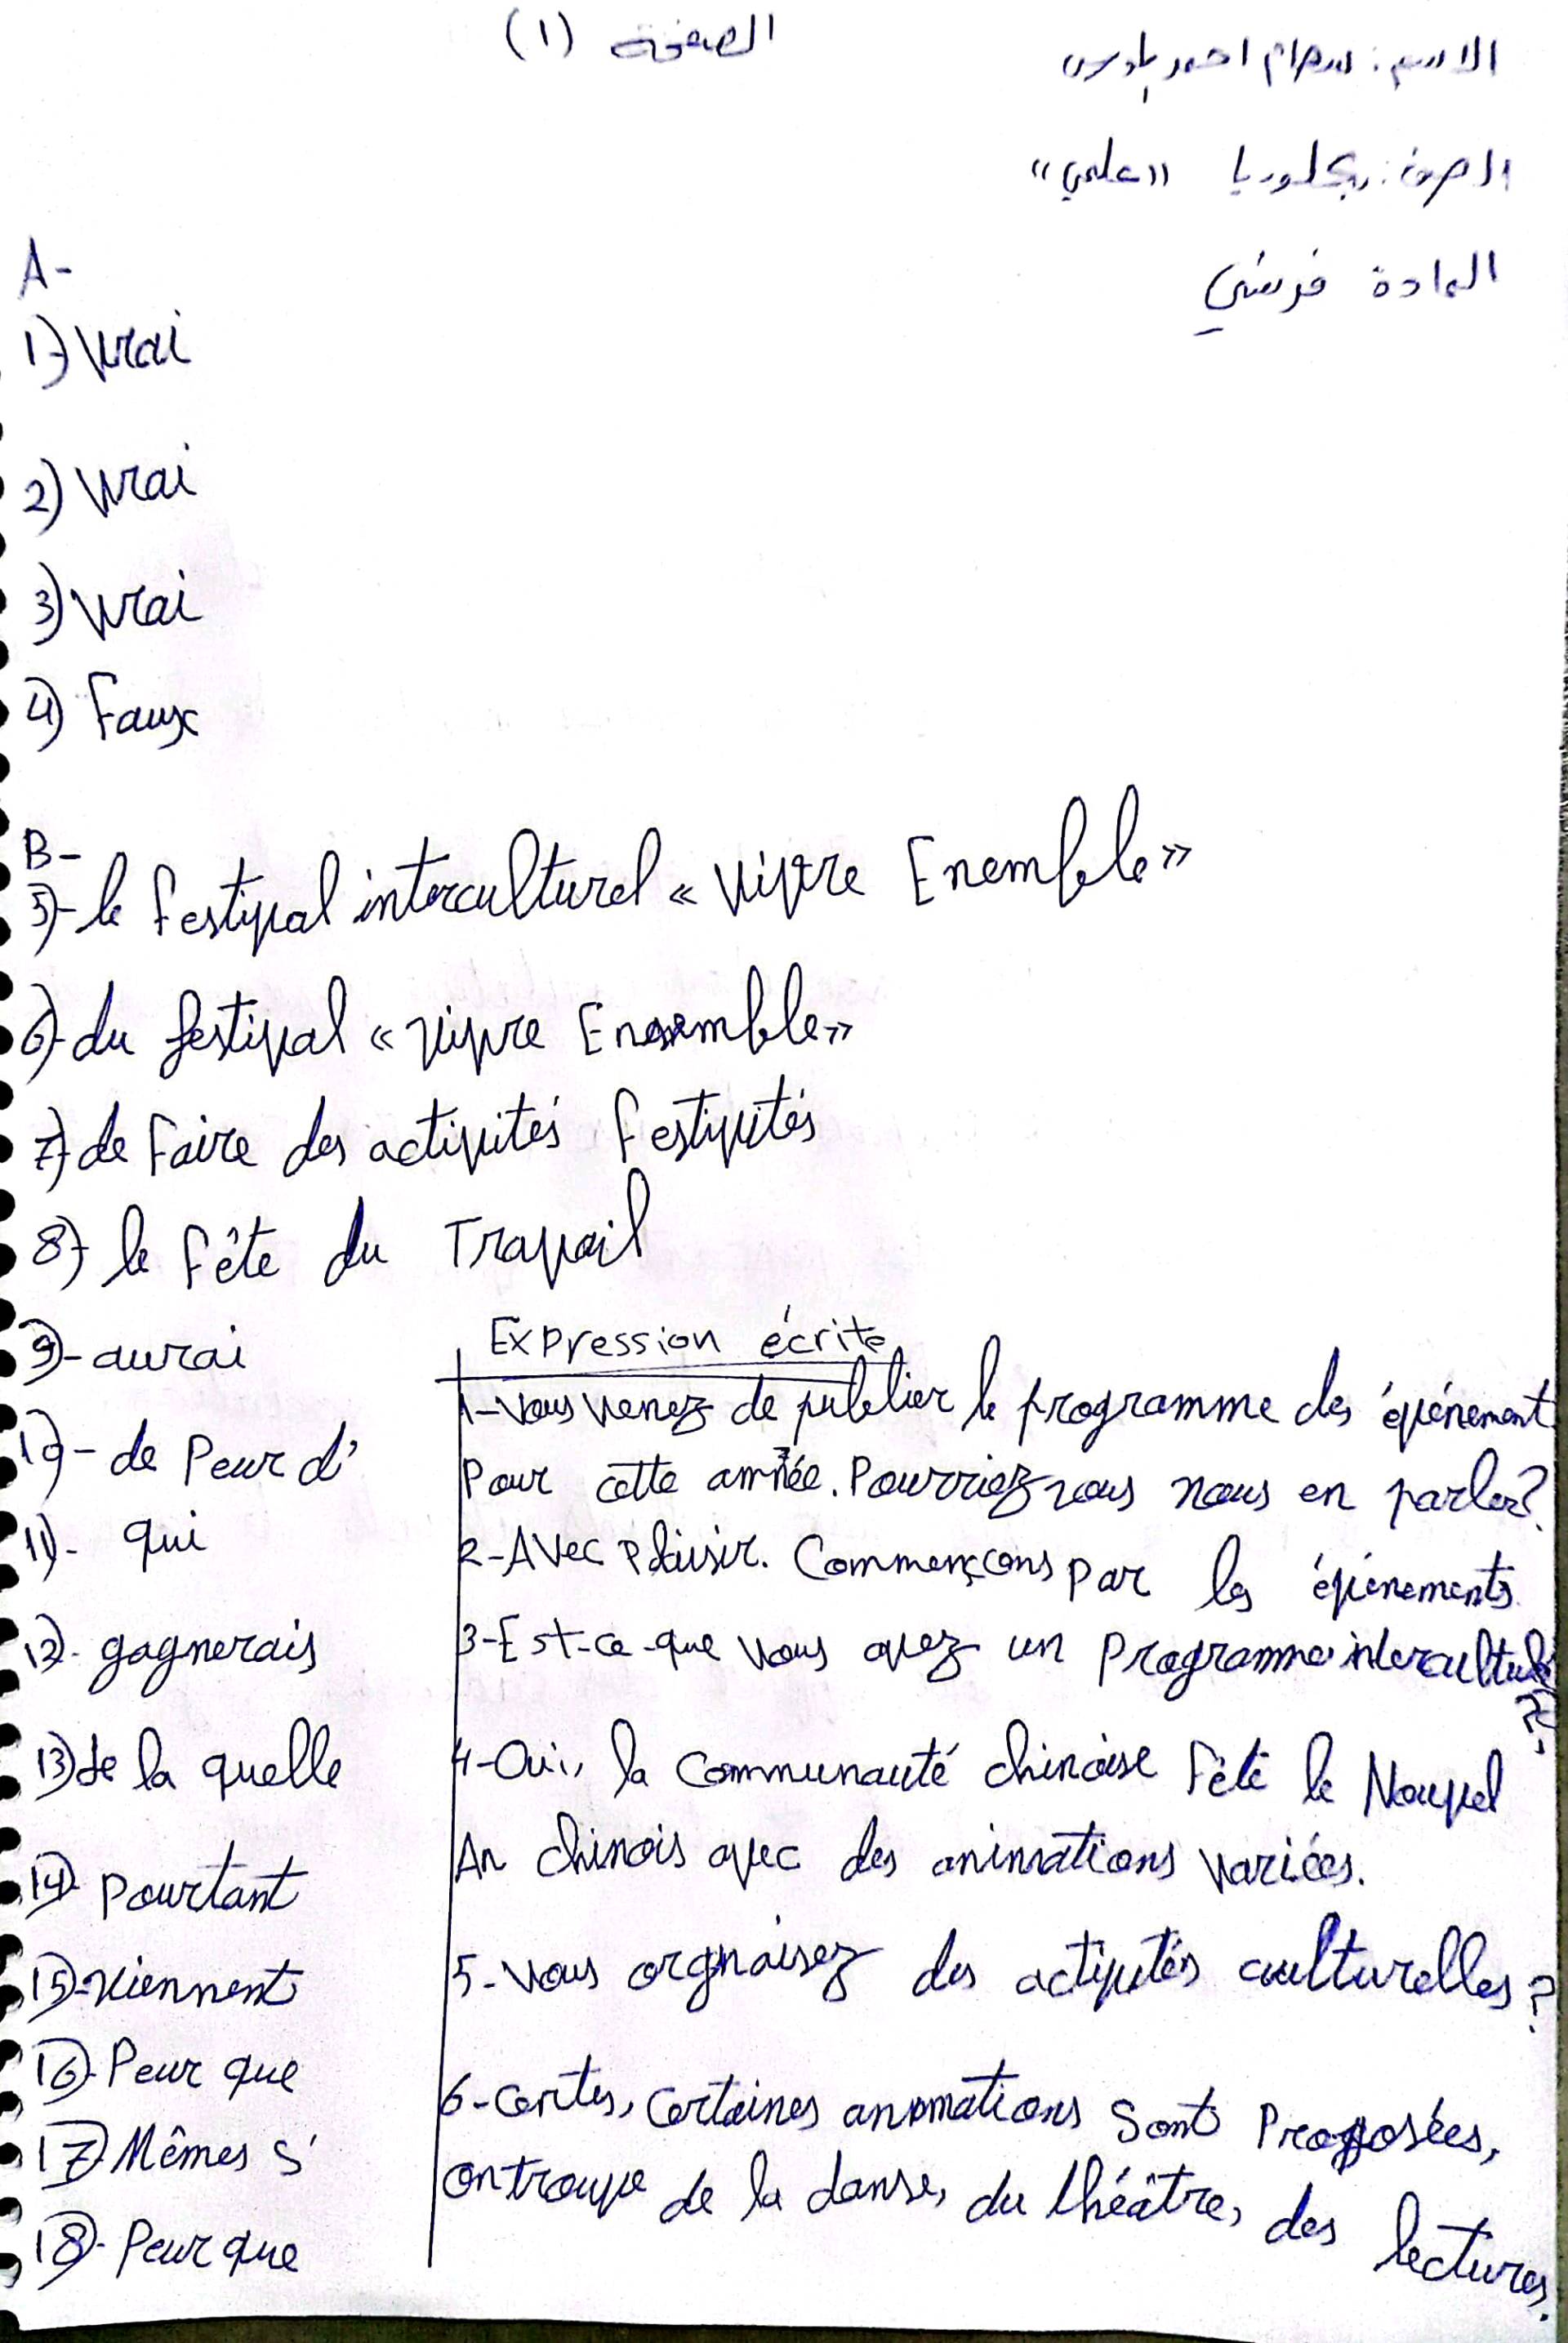 الصفحة (١)
الاسم: سهام احمد بادوس
الصف: بكلوريا «علمي»
المادة فرنسي
A-
1) Vrai
2) Vrai
3) Vrai
4) Faux
B-
5)- le festival interculturel « Vivre Enemble»
6)- du festival « vivre Ensemble»
7) de faire des activités festivités
8)- le fête du Travail
9)- aurai
10)- de Peur d'
11)- qui
12)- gagnerais
13) de la quelle
14)- Pourtant
15)- viennent
16)- Peur que
17) Mêmes s'
18)- Peur que
Expression écrite
1- Vous venez de publier le programme des événement
Pour cette année. Pourriez vous nous en parler?
2- Avec Plaisir. Commençons par les événements
3- Est-ce-que vous avez un programme interculturel
?
4- Oui, la communauté chinoise fête le Nouvel
An chinois avec des animations variées.
5- Vous orgnaisez des activités culturelles?
6- Certes, certaines animations sont Proposées,
on trouve de la danse, du théâtre, des lectures.